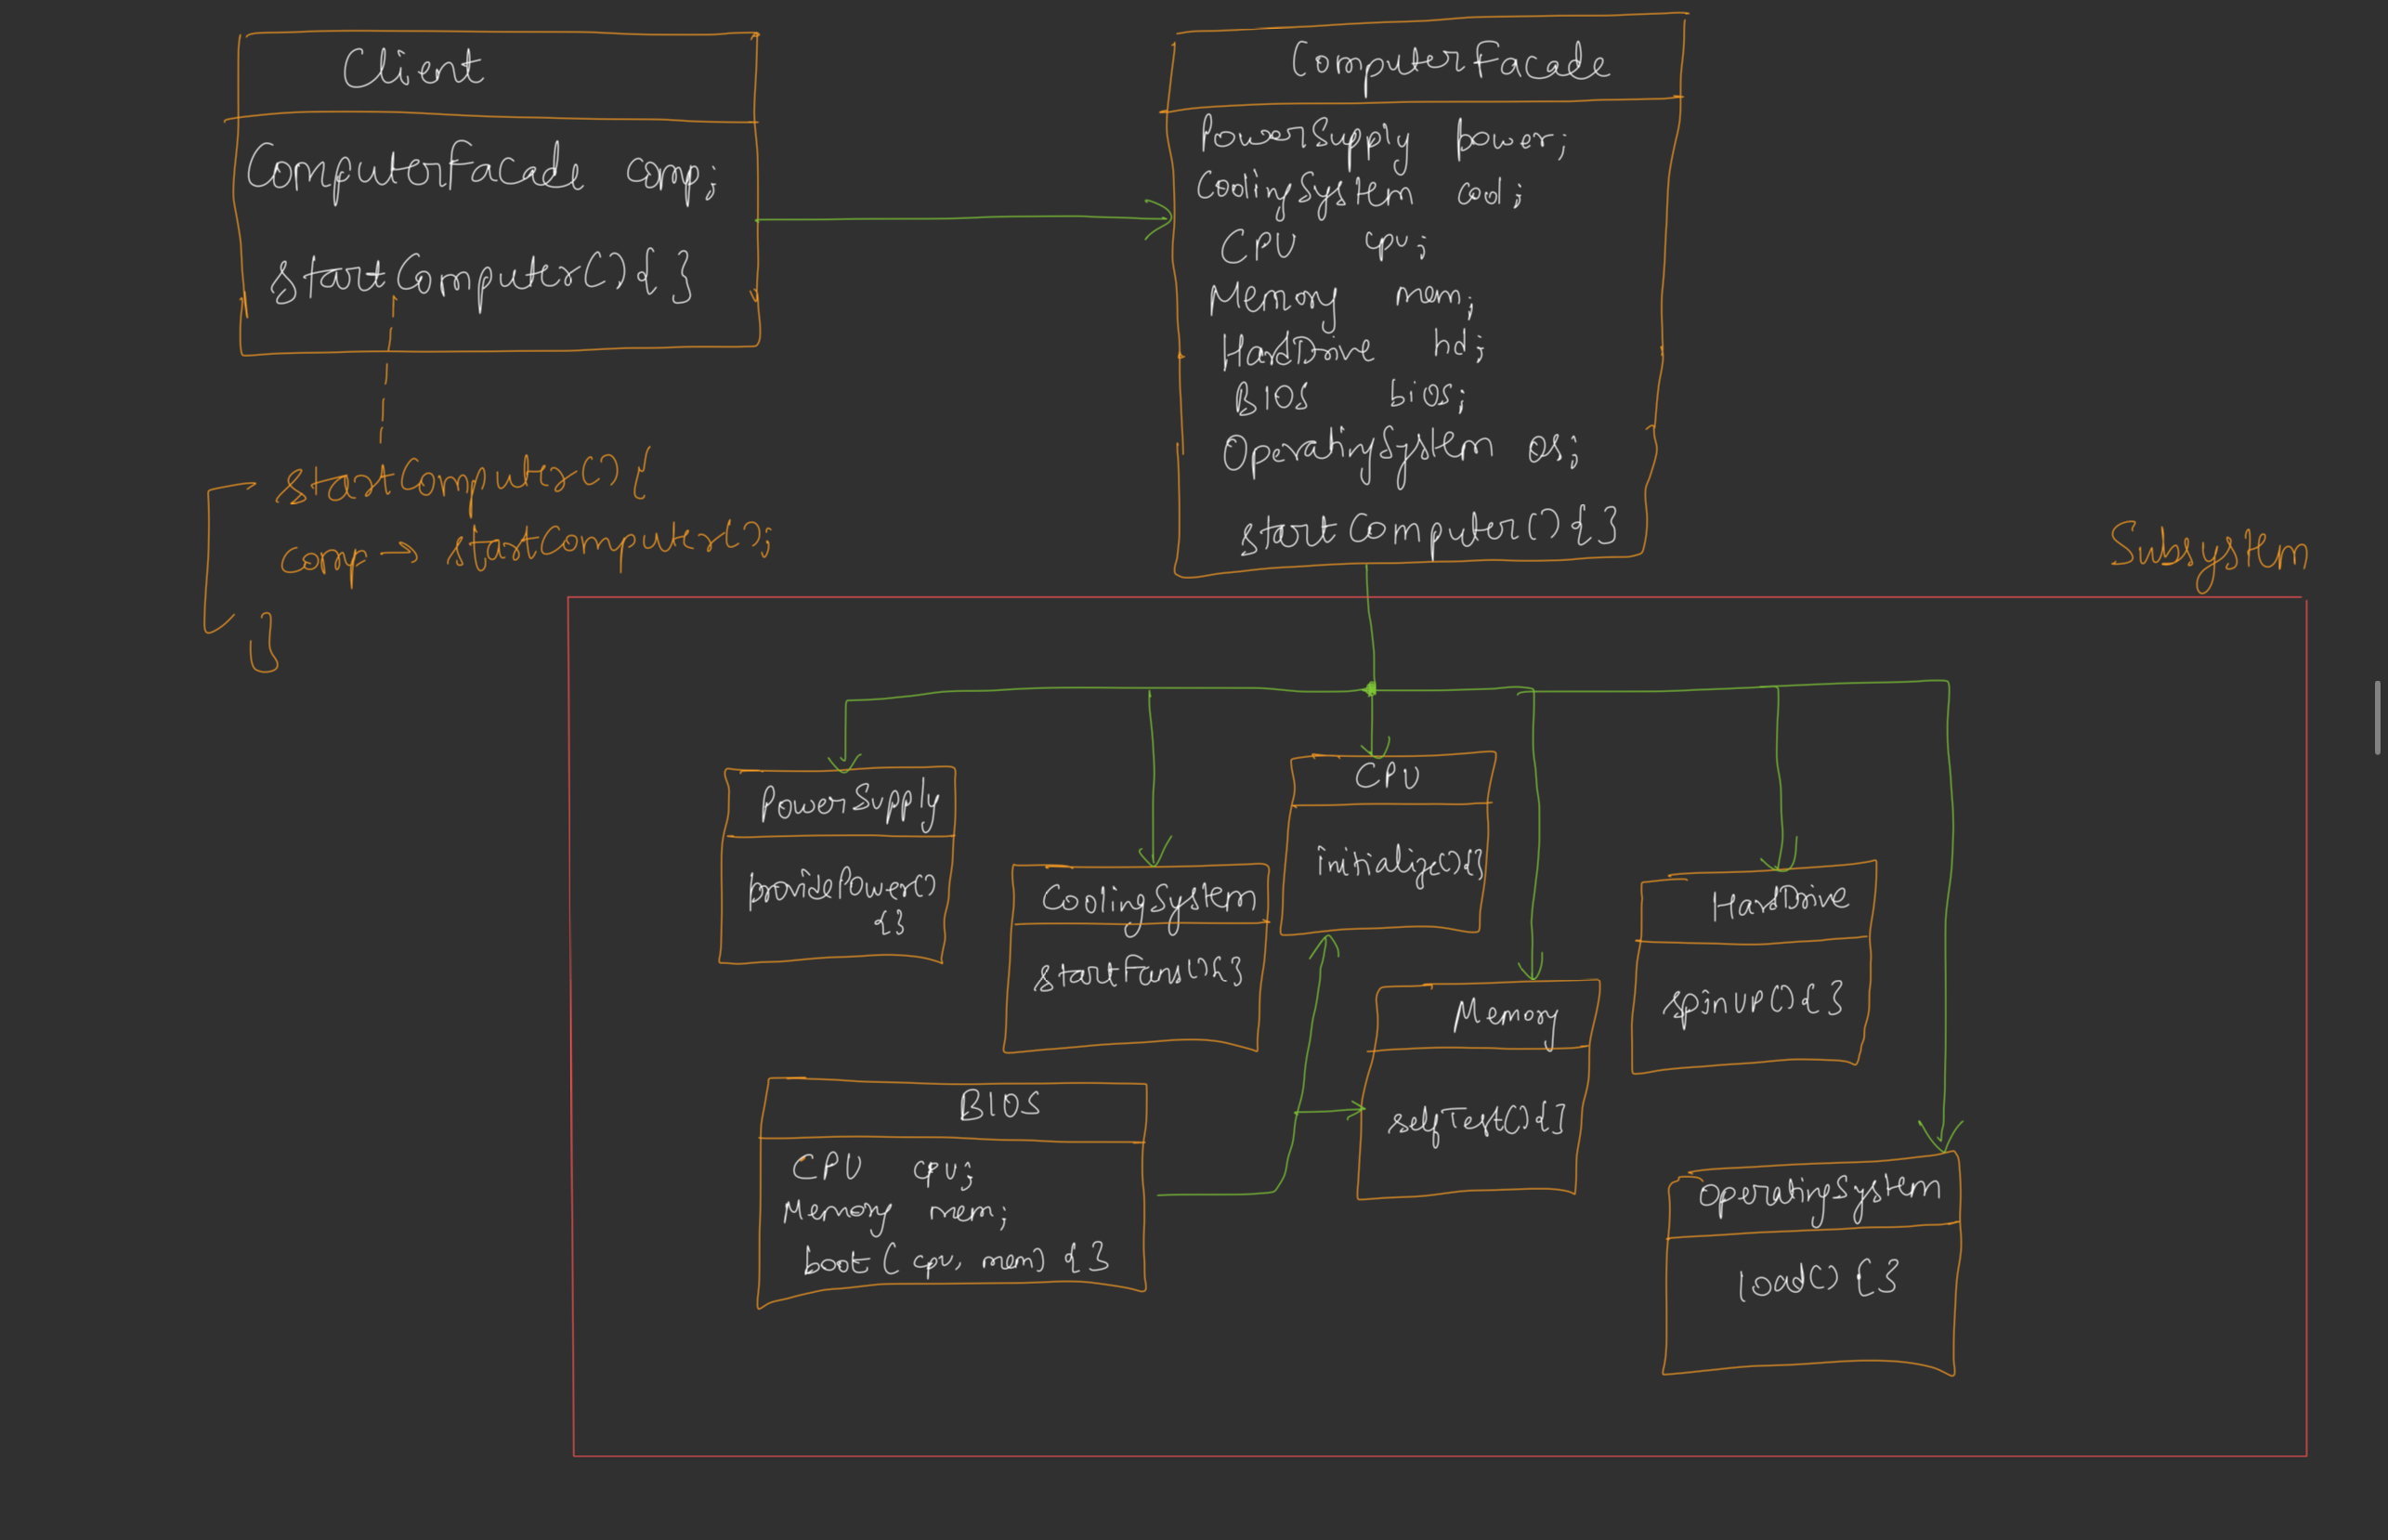 Client
ComputerFacade comp;
startComputer(){ }
startComputer(){
comp→ startComputer();
}
ComputerFacade
PowerSupply power;
CoolingSystem cool;
CPU cpu;
Memory mem;
HardDrive hd;
BIOS bios;
OperatingSystem os;
startComputer(){ }
Subsystem
PowerSupply
providePower()
{}
CoolingSystem
startFans(){}
CPU
initialize(){}
Memory
selfTest(){}
HardDrive
spinUP(){ }
BIOS
CPU cpu;
Memory mem;
boot( cpu, mem) { }
OperatingSystem
load() { }